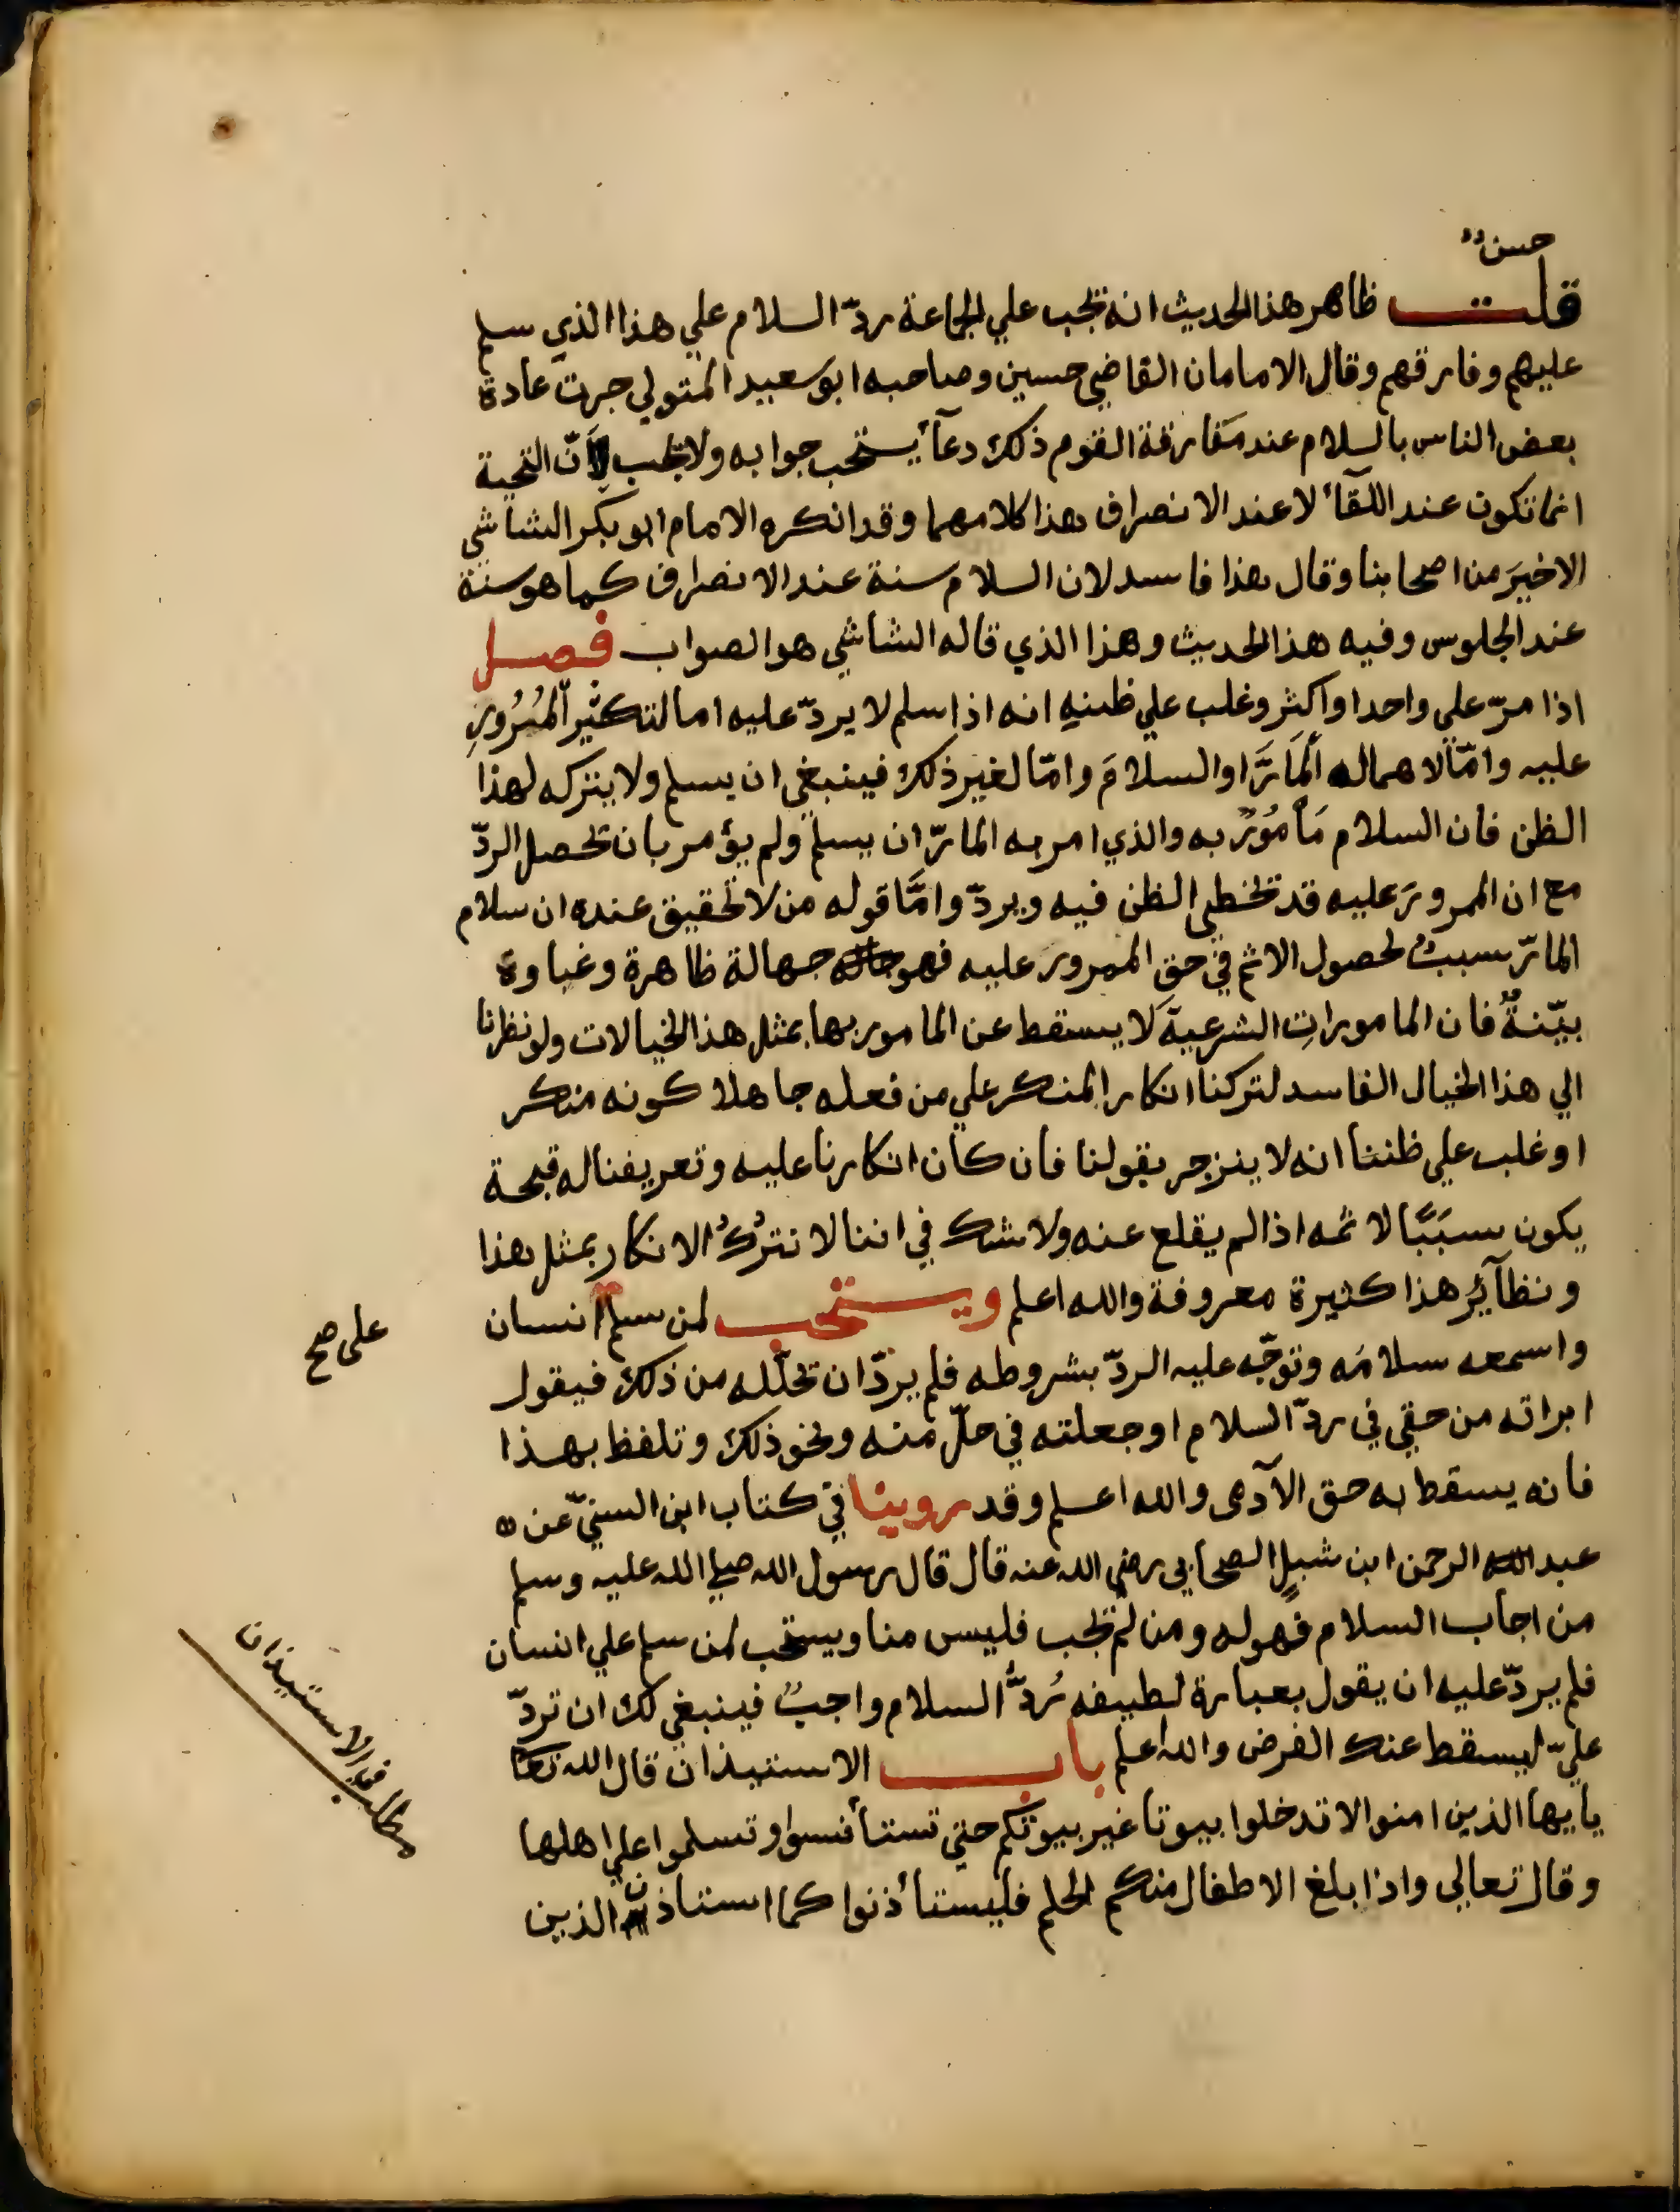 حسن
قلت ظاهر هذا الحديث انه يجب علي الجماعة ردّ السلام علي هذا الذي سلم
عليهم وفارقهم وقال الامامان القاضي حسين وصاحبه ابو سعيد المتولي جرت عادة
بعض الناس بالسلام عند مفارقة القوم ذلك دعآء يستحب جوابه ولا يجب لأنّ التحية
انما تكون عند اللقآء لا عند الانصراف هذا كلامهما وقد انكره الامام ابو بكر الشاشي
الاخير من اصحابنا وقال هذا فاسد لان السلام سنة عند الانصراف كما هو سنة
عند الجلوس وفيه هذا الحديث وهذا الذي قاله الشاشي هو الصواب فصل
اذا مرّ علي واحد او اكثر وغلب علي ظنه انه اذا سلم لا يردّ عليه اما لتكثير المُرُورِ
عليه وامّا لاهماله المآرَّ او السلامَ وامّا لغير ذلك فينبغي ان يسلم ولا يتركه لهذا
الظن فان السلام مَأمُورٌ به والذي امر به المارّ ان يسلم ولم يؤمر بان تحصل الردّ
مع ان الممرورَ عليه قد تخطي الظن فيه ويردّ وامَّا قوله من لا تحقيق عنده ان سلام
المارّ سببٌ لحصول الاثم في حق الممرور عليه فهو جهالة ظاهرة وغباوة
بيّنةٌ فان المامورات الشرعية لا يسقط عن المامور بها بمثل هذا الخيالات ولو نظرنا
الي هذا الخيال الفاسد لتركنا انكار المنكر علي من فعله جاهلا كونه منكر
او غلب علي ظننا انه لا ينزجر بقولنا فان كان انكارنا عليه وتعريفنا له قبحة
يكون سببًا لاثمه اذا لم يقلع عنه ولا شك في اننا لا نتركُ الانكار بمثل هذا
ونظآئر هذا كثيرة معروفة والله اعلم ويستحب لمن سلم انسان
على صح
واسمعه سلامه وتوجّه عليه الردّ بشروطه فلم يردّ ان تحلّله من ذلك فيقول
ابراته من حقي في ردّ السلام او جعلته في حلّ منه ونحو ذلك وتلفظ بهذا
فانه يسقط به حق الآدمى والله اعلم وقد روينا في كتاب ابن السنيّ عن
عبد الرحمن ابن شبلٍ الصحابى رضي الله عنه قال قال رسول الله صلي الله عليه وسلم
من اجاب السلام فهو له ومن لم يجب فليس منا ويستحب لمن سلم علي انسان
فلم يردّ عليه ان يقول بعبارة لطيفه رُدُّ السلام واجبٌ فينبغي لك ان تردّ
عليّ ليسقط عنك الفرض والله اعلم باب الاستيذان قال الله تعا
مطلب في الاستيذان
يايها الذين امنوا لا تدخلوا بيوتا غير بيوتكم حتي تستأنسوا وتسلموا علي اهلها
وقال تعالي واذا بلغ الاطفال منكم الحلم فليستأذنوا كما استاذن الذين